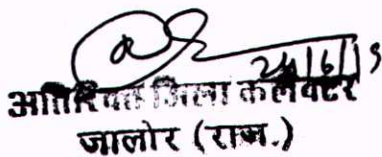 24/6/19
अतिरिक्त जिला कलेक्टर
जालोर (राज.)